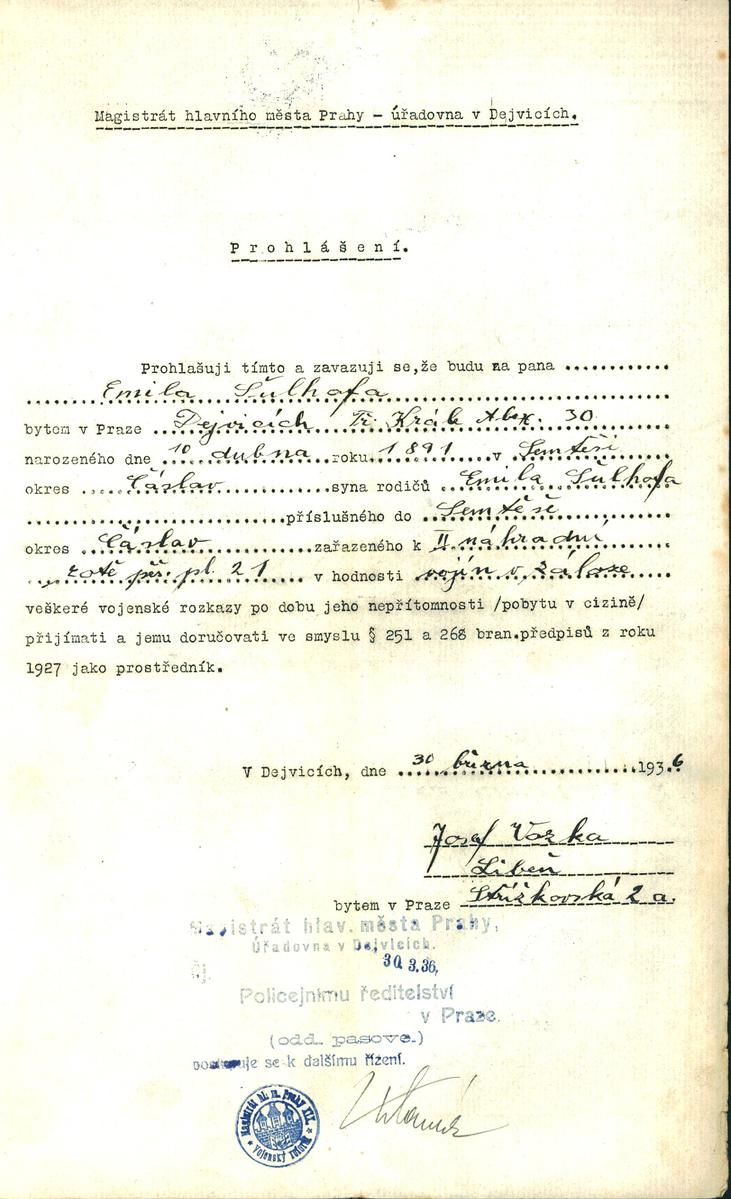 Magistrát hlavního města Prahy - úřadovna v Dejvicích.
Prohlášení.
Prohlašuji tímto a zavazuji se,že budu na pana ............
Emila Šulhofa
bytem v Praze Dejvicích Tř. Krále Alex. 30
narozeného dne 10 dubna roku 1891 v Semtěši
okres Čáslav syna rodičů Emila Šulhofa
příslušného do Semtěše
okres Čáslav zařazeného k II náhradní
rotě pěš. pl. 21 v hodnosti vojín v záloze
veškeré vojenské rozkazy po dobu jeho nepřítomnosti /pobytu v cizině/
přijímati a jemu doručovati ve smyslu § 251 a 268 bran.předpisů z roku
1927 jako prostředník.
V Dejvicích, dne 30 března 1936
Josef Vozka
Libeň
bytem v Praze Střížkovská 2 a.
Magistrát hlav. města Prahy,
Úřadovna v Dejvicích.
30.3.36.
Čj.
Policejnímu ředitelství
v Praze.
(odd. pasové.)
postupuje se k dalšímu řízení.
Magistrát hl. m. Prahy XIX. * Vojenský referát *